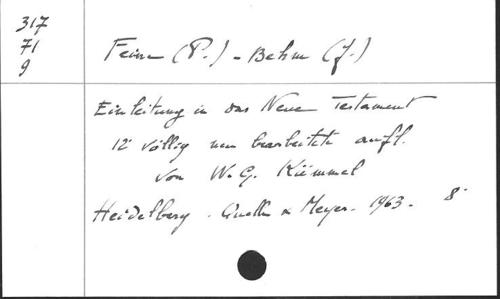 317
71
9
Feine (P.) - Behm (J.)
Einleitung in das Neue Testament
12 völlig neu bearbeitete aufl.
von W. G. Kümmel
Heidelberg. Quelle u Meyer. 1963. 8°